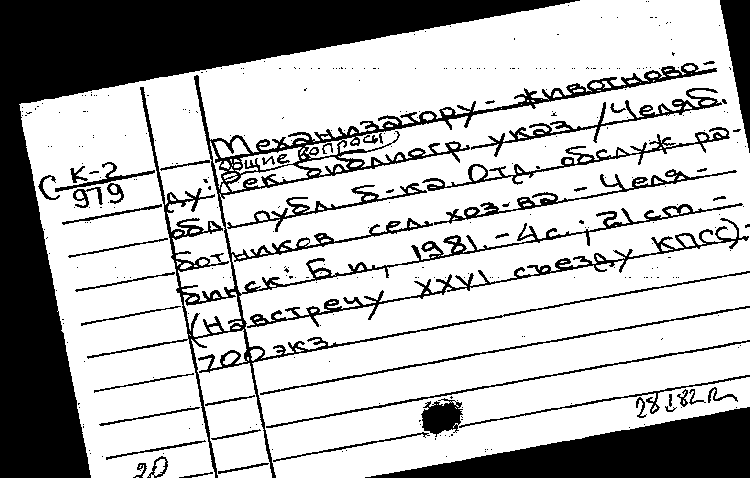 С К-2
979
Механизатору-животново-
ду: Общие вопросы
Рек. библиогр. указ. /Челяб.
обл. публ. б-ка. Отд. обслуж. ра-
ботников сел. хоз-ва. - Челя-
бинск: Б. и., 1981. - 4 с.; 21 см. -
(Навстречу XXVI съезду КПСС).-
700 экз.
20